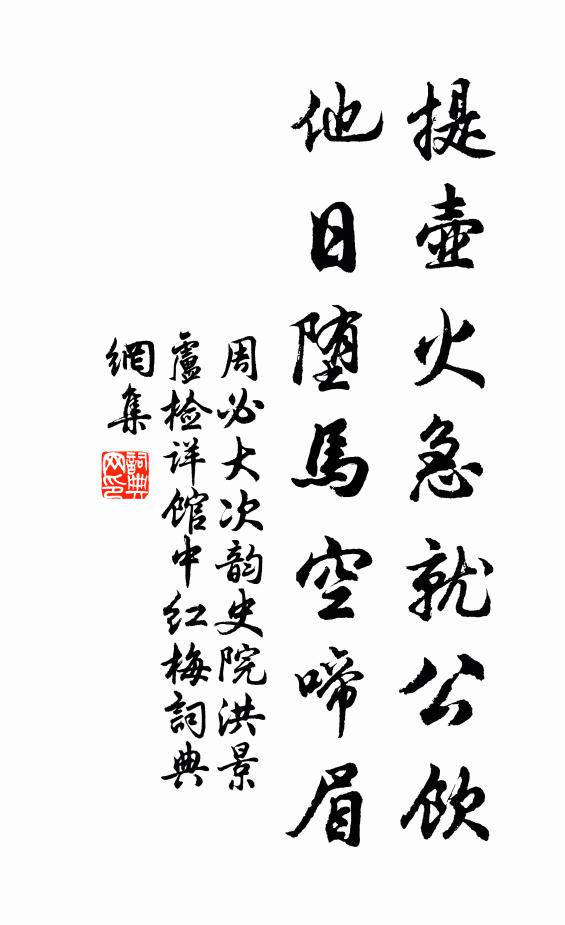 提壺火急就公飲
他日堕馬空啼眉
周必大次韵史院洪景
盧检详馆中红梅詞典
網集
詞典网印